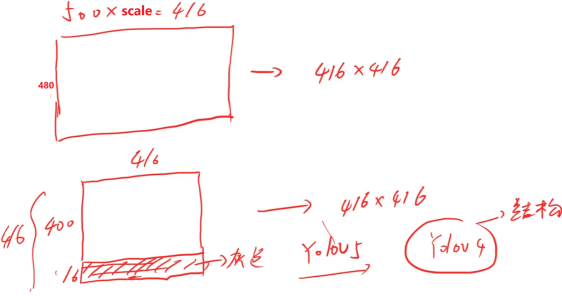 500 × scale = 416
480
416 × 416
416
416
400
416 × 416
结构
16
灰色
Yolov5
Yolov4